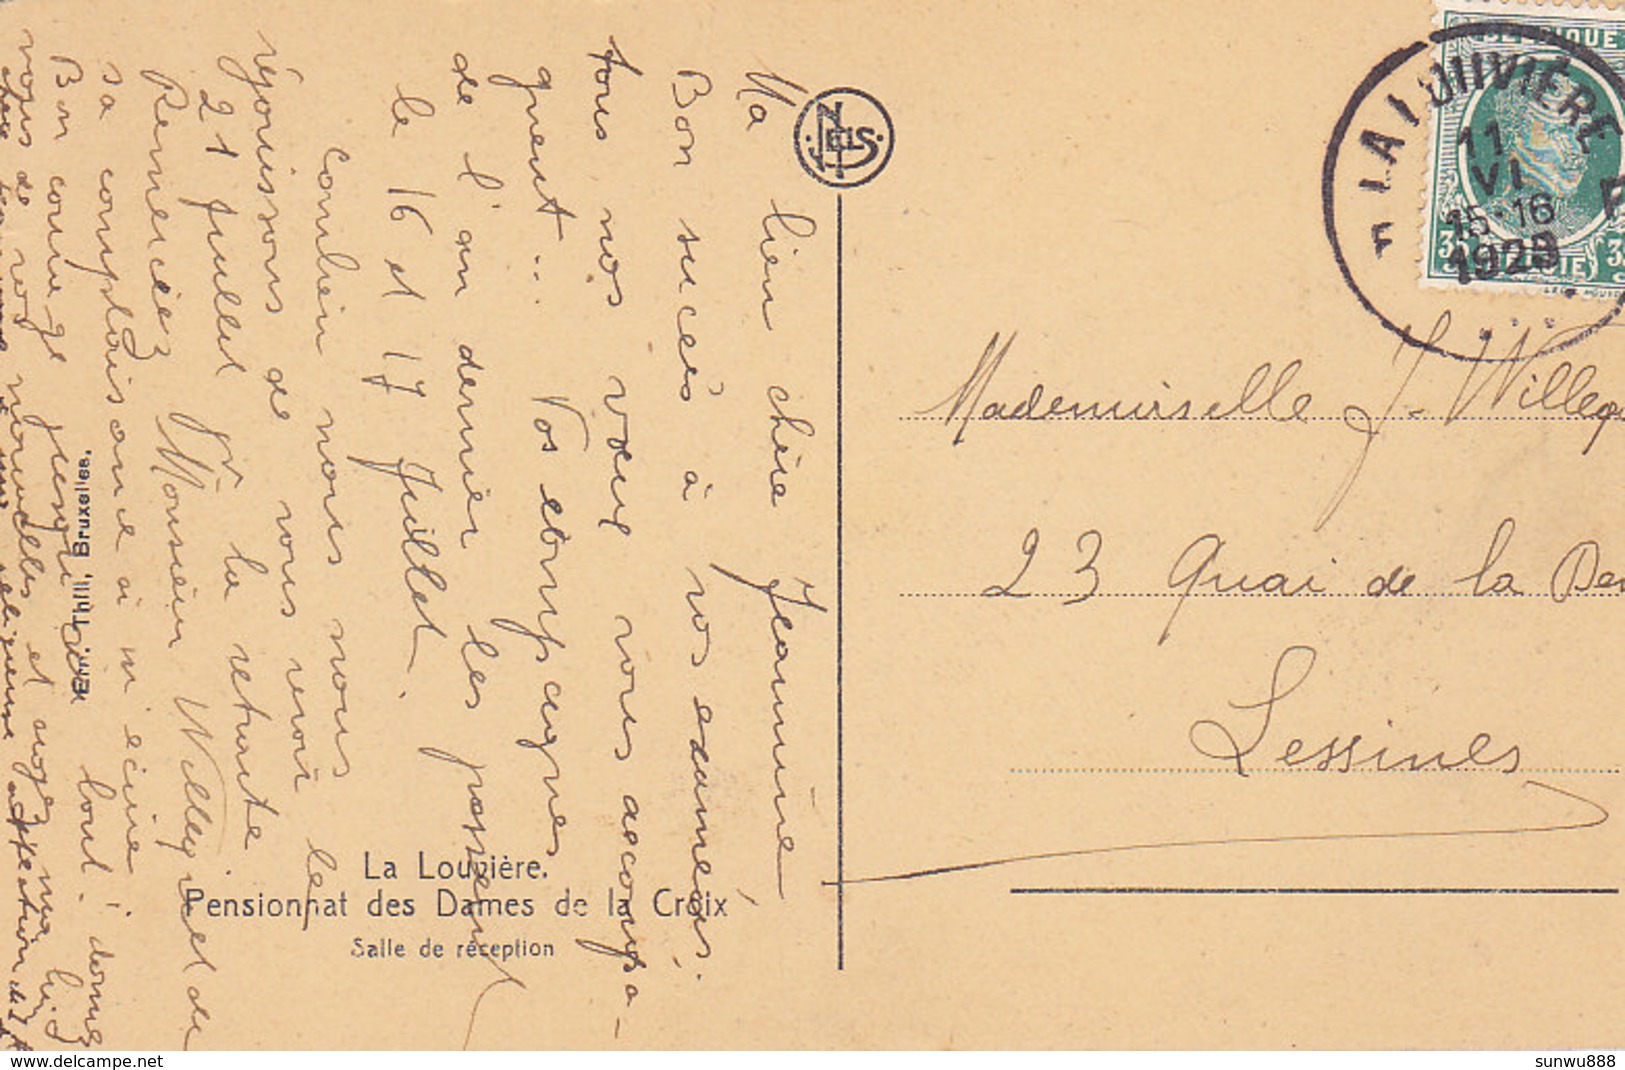 Ma bien chère Jeannine
Bon succès à vos examens!
tous nos vœux vous accompa-
gnent... Vos compagnes
de l'an dernier les passent
le 16 et 17 Juillet.
Combien nous nous
réjouissons de vous revoir le
21 Juillet pr la retraite
Remerciez Monsieur Willeq de
sa complaisance à m'écrire
Bon courage jusqu'au bout! donnez
nous de vos nouvelles et
NELS
Ern. Thill, Bruxelles.
La Louvière.
Pensionnat des Dames de la Croix
Salle de réception
BELGIQUE
LA LOUVIÈRE
11
VI
15-16
1929
35
Mademoiselle J. Willeq
23 Quai de la Den
Lessines
delcampe.net
sunwu888